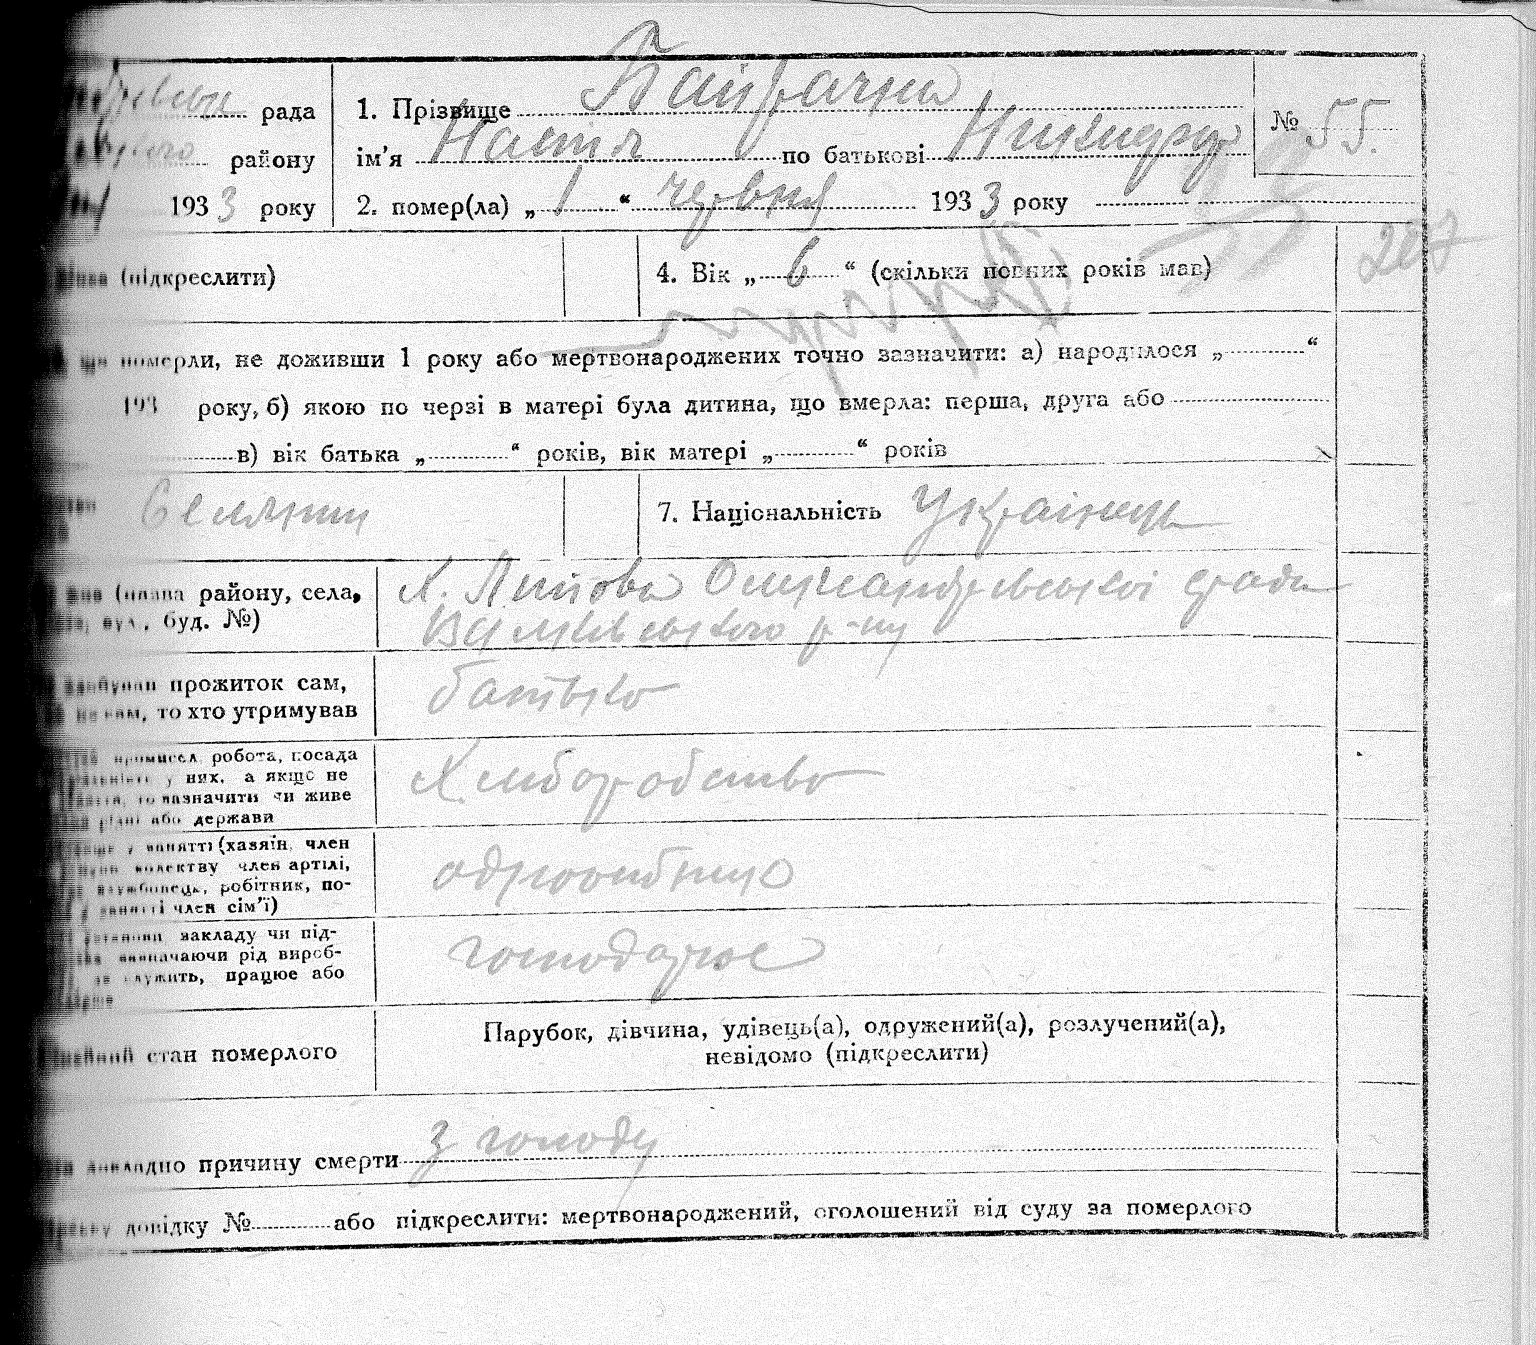 рада 1. Прізвище Байрачна № 55.
району ім'я Настя по батькові
1933 року 2. помер(ла) „ 1 “ червня 1933 року
(підкреслити) 4. Вік „ 6 “ (скільки повних років мав) 287
померли, не доживши 1 року або мертвонароджених точно зазначити: а) народилося „ “
193 року, б) якою по черзі в матері була дитина, що вмерла: перша, друга або
в) вік батька „ “ років, вік матері „ “ років
Селянин 7. Національність Українец
(назва району, села, Х. Липова Олександрівської ради
вул., буд. №) Валківського р-ну
прожиток сам, батько
то хто утримував
промисел, робота, посада Хліборобство
у них, а якщо не
зазначити чи живе
або держави
у занятті (хазяїн, член одноосібник
колективу член артілі,
службовець, робітник, по-
занятті член сім'ї)
закладу чи під- господарює
визначаючи рід вироб-
служить, працює або
стан померлого Парубок, дівчина, удівець(а), одружений(а), розлучений(а),
невідомо (підкреслити)
докладно причину смерти з голоду
довідку № або підкреслити: мертвонароджений, оголошений від суду за померлого